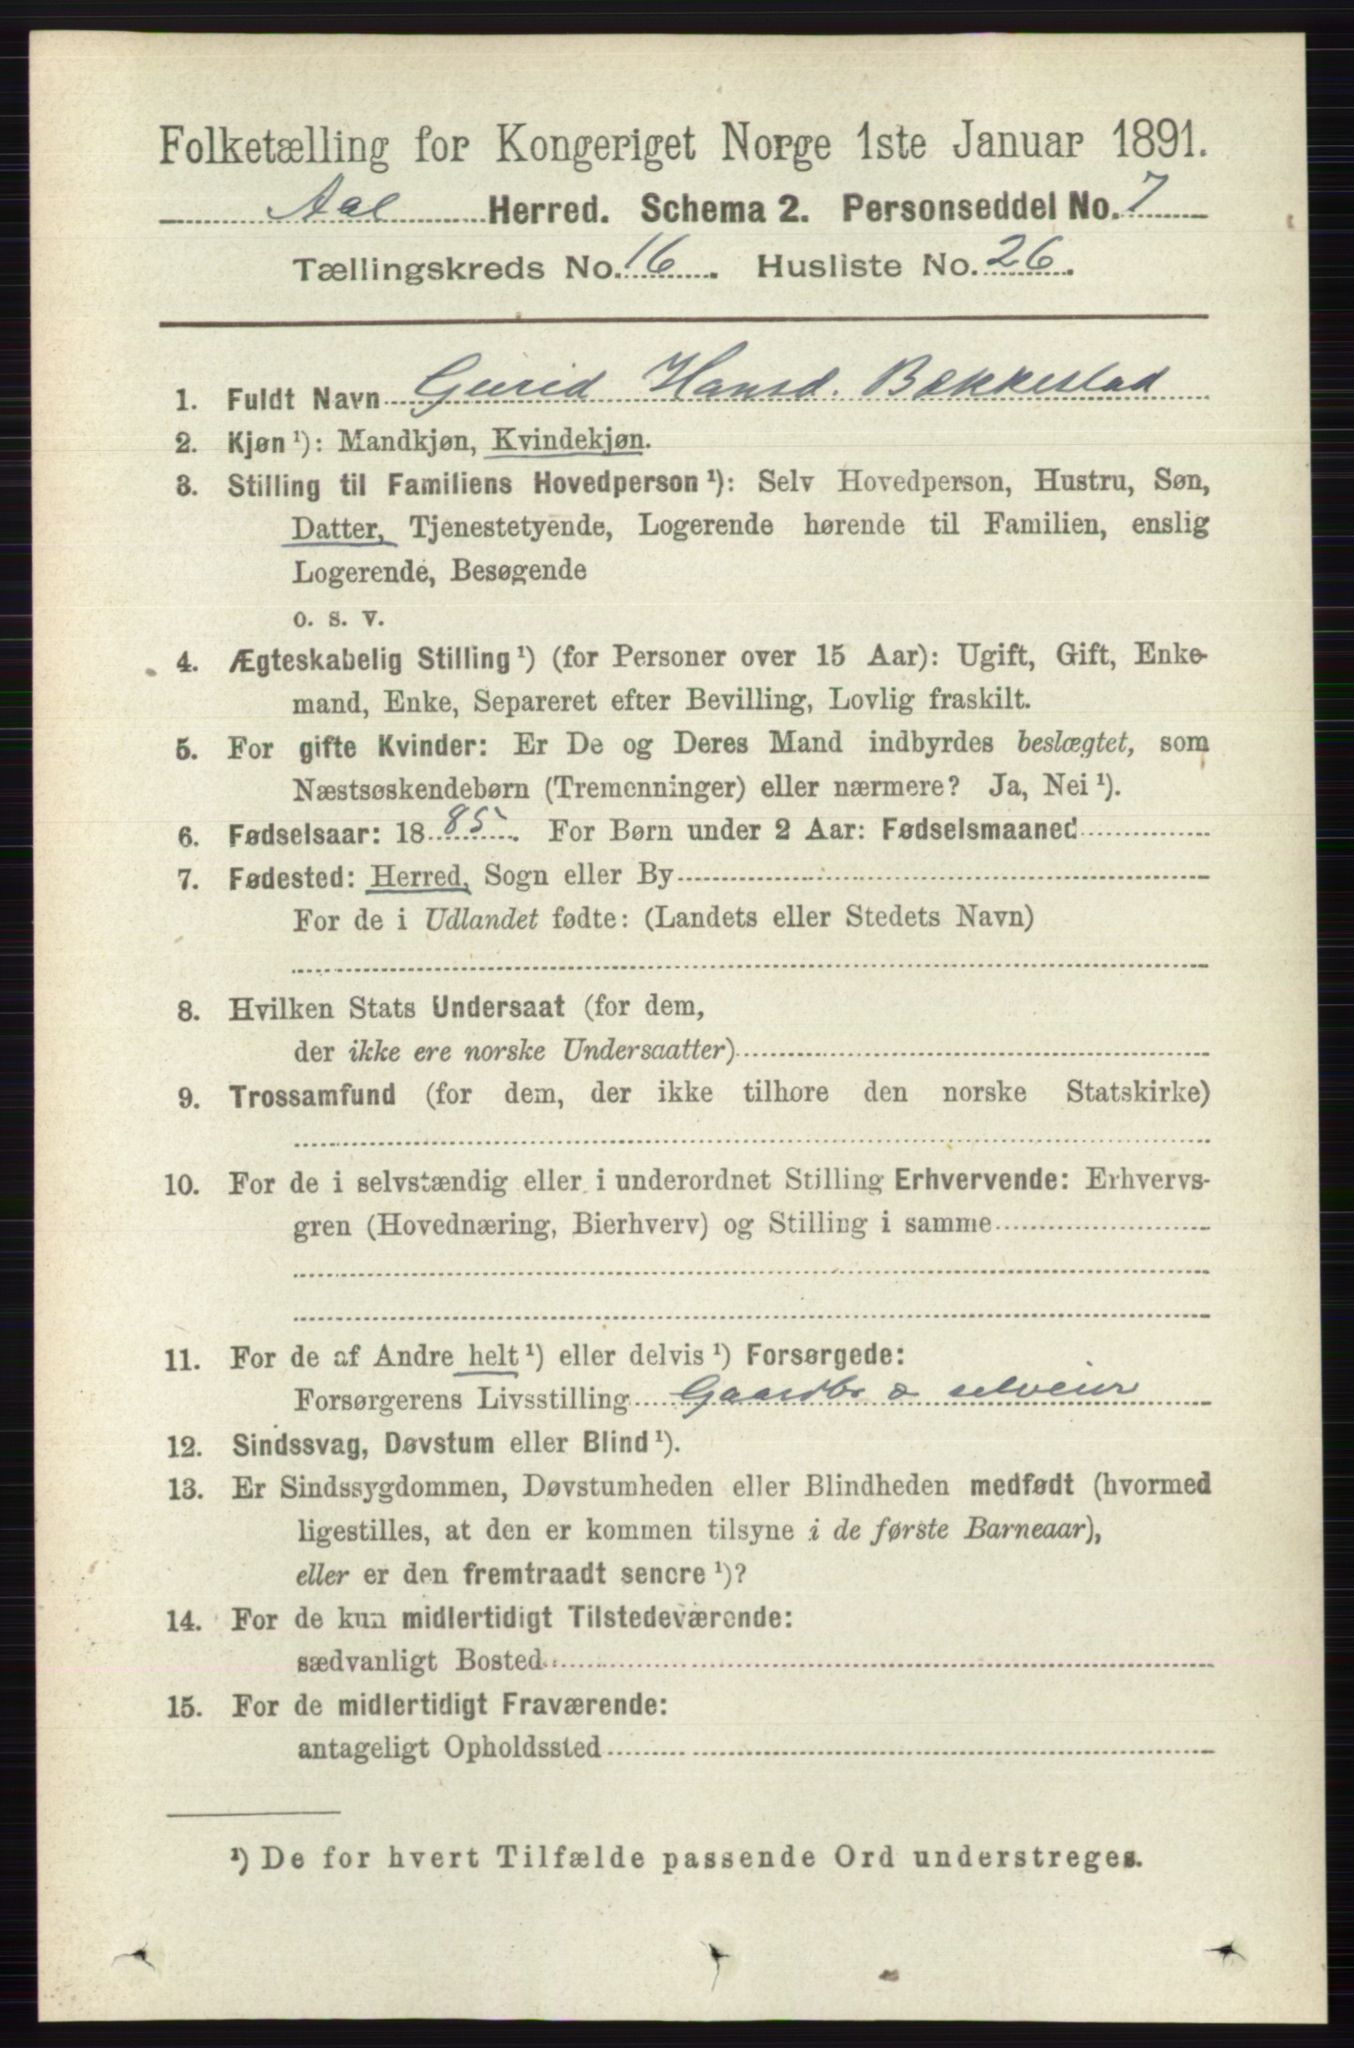 Folketælling for Kongeriget Norge 1ste Januar 1891.
Aal Herred. Schema 2. Personseddel No. 7
Tællingskreds No. 16. Husliste No. 26.
1. Fuldt Navn Gurid Hansd. Bekkestad
2. Kjøn ¹): Mandkjøn, Kvindekjøn.
3. Stilling til Familiens Hovedperson ¹): Selv Hovedperson, Hustru, Søn,
Datter, Tjenestetyende, Logerende hørende til Familien, enslig
Logerende, Besøgende
o. s. v.
4. Ægteskabelig Stilling ¹) (for Personer over 15 Aar): Ugift, Gift, Enke-
mand, Enke, Separeret efter Bevilling, Lovlig fraskilt.
5. For gifte Kvinder: Er De og Deres Mand indbyrdes beslægtet, som
Næstsøskendebørn (Tremenninger) eller nærmere? Ja, Nei ¹).
6. Fødselsaar: 1885. For Børn under 2 Aar: Fødselsmaaned
7. Fødested: Herred, Sogn eller By
For de i Udlandet fødte: (Landets eller Stedets Navn)
8. Hvilken Stats Undersaat (for dem,
der ikke ere norske Undersaatter)
9. Trossamfund (for dem, der ikke tilhøre den norske Statskirke)
10. For de i selvstændig eller i underordnet Stilling Erhvervende: Erhvervs-
gren (Hovednæring, Bierhverv) og Stilling i samme
11. For de af Andre helt ¹) eller delvis ¹) Forsørgede:
Forsørgerens Livsstilling Gaardbr & selveier
12. Sindssvag, Døvstum eller Blind ¹).
13. Er Sindssygdommen, Døvstumheden eller Blindheden medfødt (hvormed
ligestilles, at den er kommen tilsyne i de første Barneaar),
eller er den fremtraadt senere ¹)?
14. For de kun midlertidigt Tilstedeværende:
sædvanligt Bosted
15. For de midlertidigt Fraværende:
antageligt Opholdssted
¹) De for hvert Tilfælde passende Ord understreges.